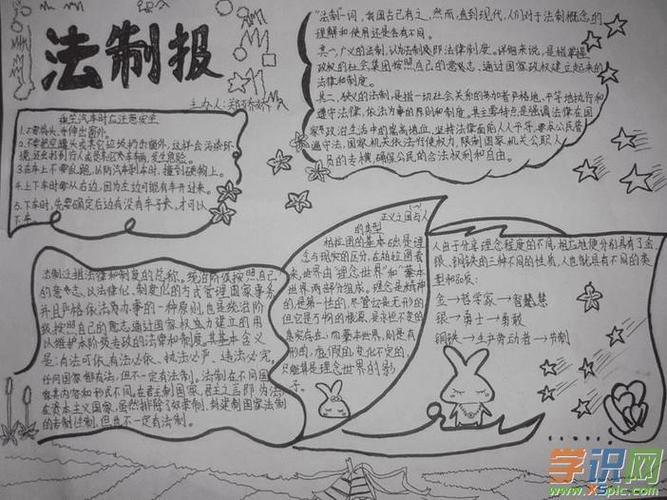 法制报
主办人:
乘坐汽车时应注意安全
1.不要将头、手伸出窗外。
2.不要把空罐头或其它垃圾扔出窗外,这样会污染环
境,还会打到行人或是其它来车辆,发生危险。
3.在车上不要乱跑,以防汽车刹车时,撞到硬物上。
4.上下车时要从右边,因为左边可能有车开过来。
5.下车时,先要确定后边有没有车子来,才可以
下车。
“法制”一词,我国古已有之,然而,直到现代,人们对于法制概念的
理解和使用还是各有不同。
其一,广义的法制,认为法制即法律制度。详细来说,是指掌握
政权的社会集团按照自己的意志、通过国家政权建立起来的
法律和制度。
其二、狭义的法制,是指一切社会关系的参加者严格地、平等地执行和
遵守法律,依法办事的原则和制度。其主要特点是强调法律在国
家政治生活中的崇高地位,坚持法律面前人人平等,要求公民普
遍守法,国家机关依法行使权力,限制国家机关公职人
员的专横,确保公民的合法权利和自由。
法制泛指法律和制度的总称。统治阶级按照自己
的意志,以法律化、制度化的方式管理国家事务,
并且严格依法办事的一种原则,也是统治阶
级按照自己的意志通过国家权力建立的用
以维护本阶级专政的法律和制度。其基本含义
是:有法可依、有法必依、执法必严、违法必究。
任何国家都有法,但不一定有法制。法制在不同国
家其内容和形式不同。在君主制国家,君主之言即为法,
在资本主义国家,虽然排除了奴隶制、封建制国家法制
的专制性制,但也不一定有法制。
正义之国与人
的类型
柏拉图的基本出是理
念与现实的区分,在柏拉图看
来,世界由“理念世界”和“摹本
世界”两部分组成。理念是精神
的,是第一性的,尽管它是无形的
但它是万物的根源,是永恒不变的
真实存在,而摹本世界,则是有
形的、虚假的、变化不定的,
只能算是理念世界的影
子。
人由于分享理念程度的不同,相应地便分别具有了金
银、铜铁的三种不同的性质,人也就具有不同的类
型和品质:
金→哲学家→智慧
银→勇士→勇敢
铜铁→生产劳动者→节制
学识网
www.XSpic.com